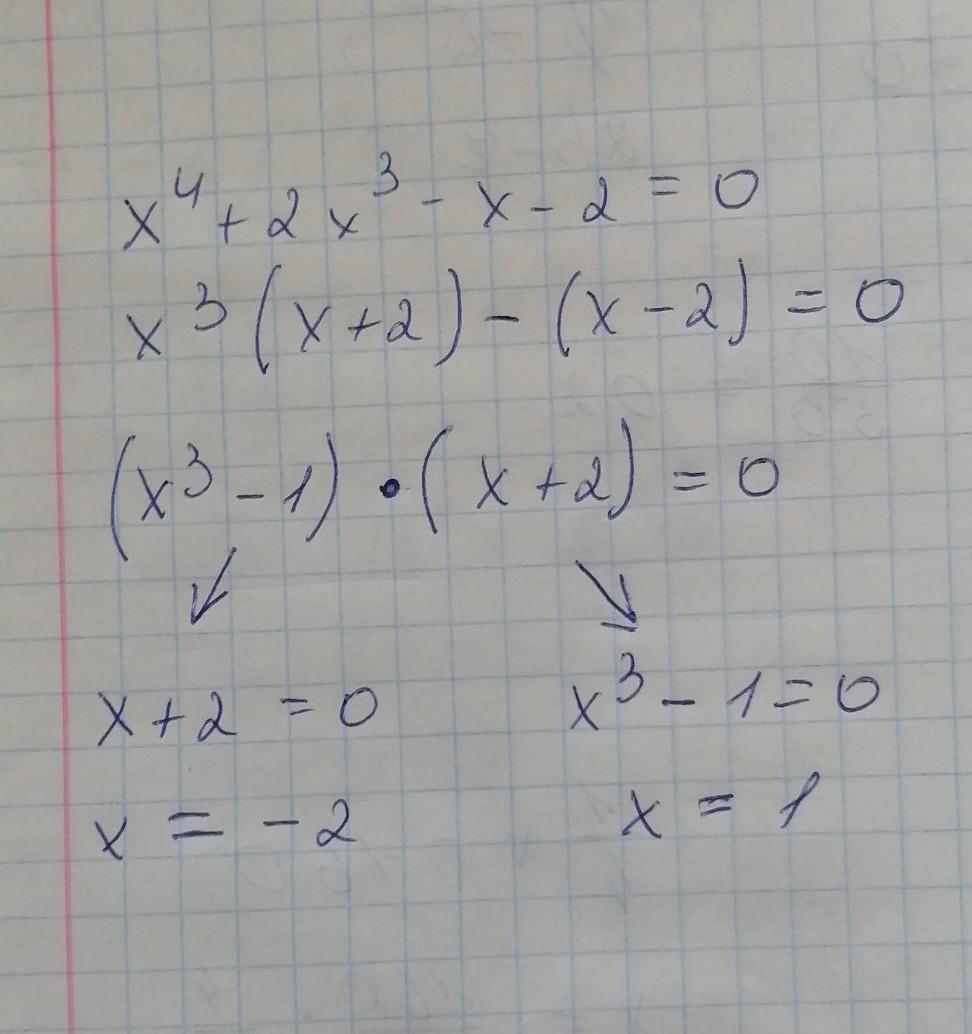 x⁴ + 2x³ - x - 2 = 0
x³(x + 2) - (x - 2) = 0
(x³ - 1) • (x + 2) = 0
↙ ↘
x + 2 = 0 x³ - 1 = 0
x = -2 x = 1